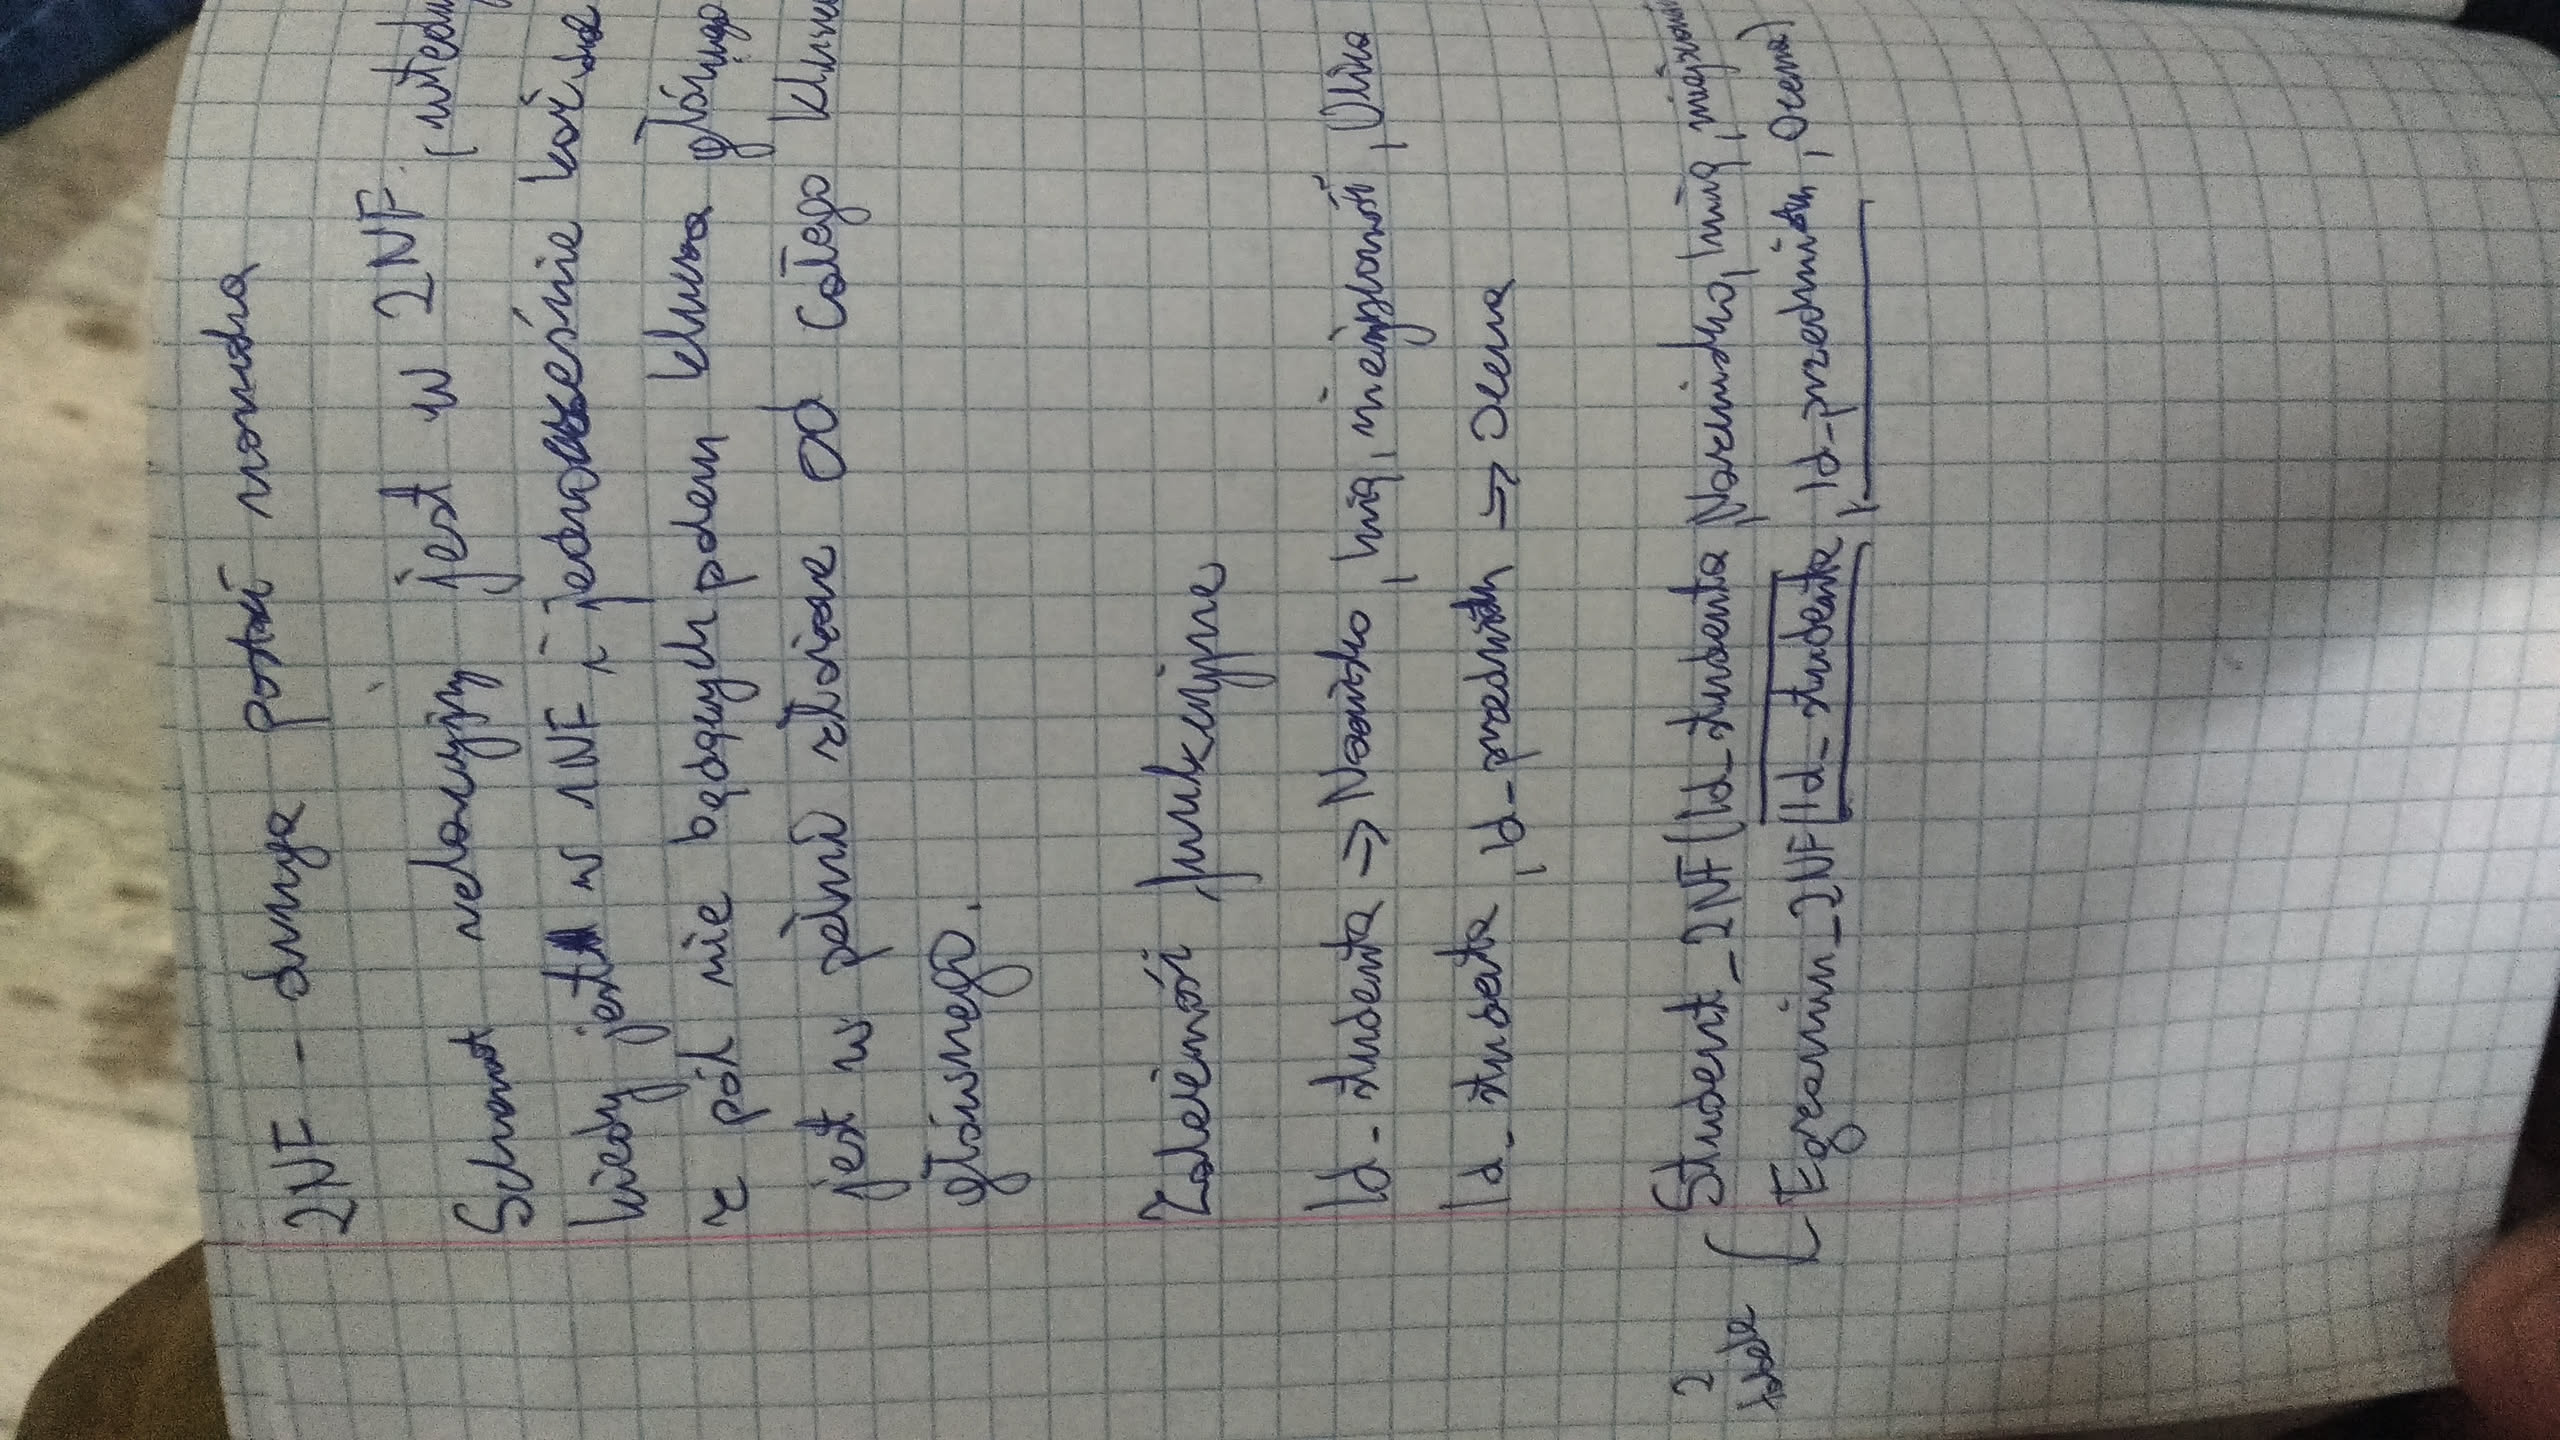 2NF - druga postać normalna
Schemat relacyjny jest w 2NF. (wtedy
kiedy jest w 1NF i jednocześnie każde
z pól nie będących polem klucza głównego
jest w pełni zależne od całego klucza
głównego.
Zależności funkcyjne
Id_studenta => Nazwisko, Imię, miejscowość, Ulica
Id_studenta, Id_przedmiotu => Ocena
2 tabele
Student_2NF(Id_studenta, Nazwisko, Imię, miejscowość
Egzamin_2NF(Id_studenta, Id_przedmiotu, Ocena)